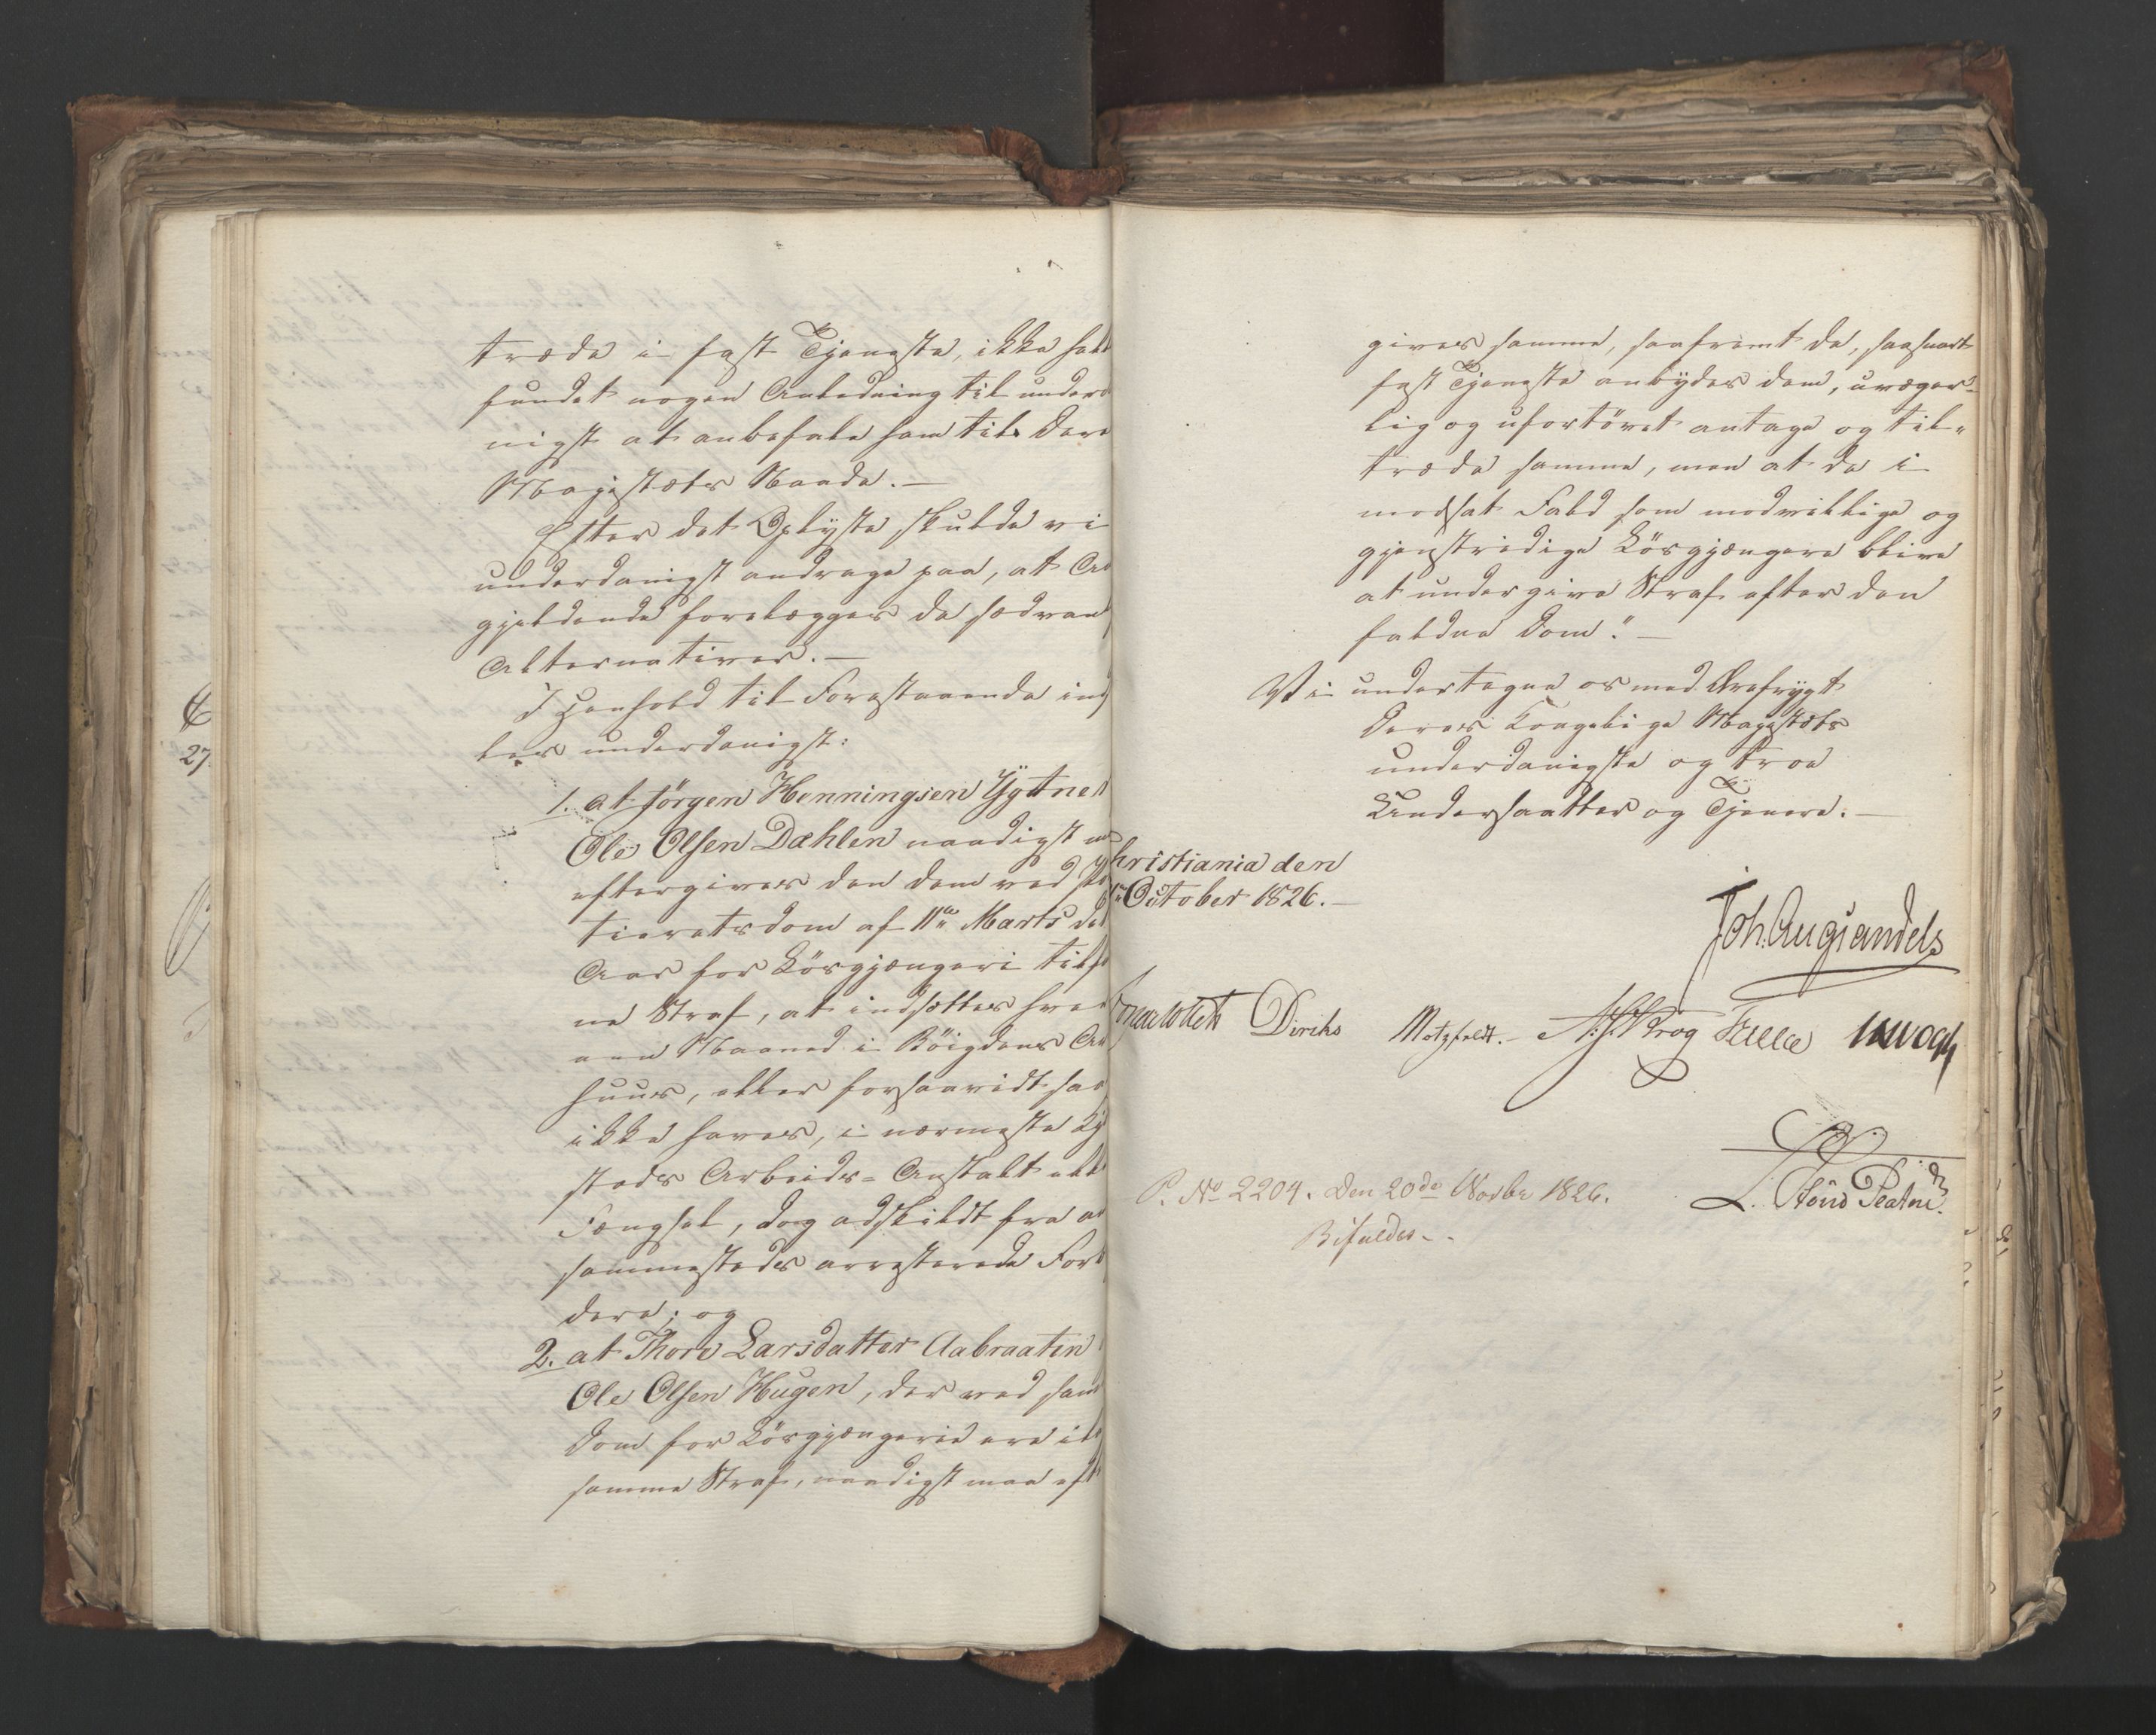 træde i fast Tjeneste, ikke hav
fundet nogen Anledning til underd
nigst at anbefale ham til Dere
Majestæts Naade.—
Efter det Oplyste skulde vi
underdanigst andrage paa, at An
gjeldende forelægges de sædvan
Alternativer.—
I Henhold til Forestaaende ind
les underdanigst:
1. at Jörgen Henningsen
Ole Olsen Dæhlen naadigst m
eftergives den dem ved
tieretsdom af 11te Marts d
Aar for Lösgjængeri tilfo
ne Straf, at indsættes hver
een Maaned i Böigdens A
huus, eller forsaavidt saa
ikke haves, i nærmeste Kj
steds Arbeids-Anstalt ell
Fængsel, dog adskildt fra a
sammesteds arresterede For
dere; og
2. at Thore Larsdatter Aabraaten
Ole Olsen Hugen, der ved sam
Dom for Lösgjængerie ere i
samme Straf, naadigst maa eft
27
gives samme, saafremt de, saasnart
fast Tjeneste anbydes dem, uvæger-
lig og ufortövet antage og til-
træde samme, men at de i
modsat Fald som modvillige og
gjenstridige Lösgjængere blive
at undergive Straf efter den
faldne Dom."—
Vi undertegne os med Ærefrygt
Deres Kongelige Majestæts
underdanigste og troe
Undersaatter og Tjenere.—
hristiania den
October 1826.—
Joh. Aug Sandels
Diriks Motzfeldt.- Krog
P. No 2204. Den 20de Novbr 1826.
Bifaldes.-
L.